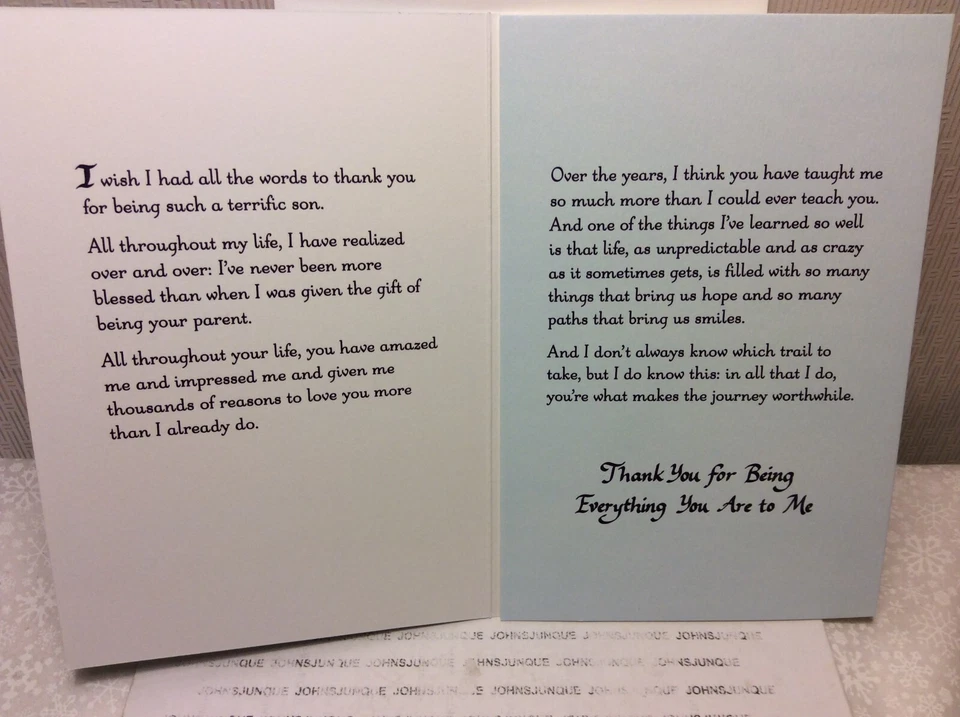 I wish I had all the words to thank you
for being such a terrific son.
All throughout my life, I have realized
over and over: I've never been more
blessed than when I was given the gift of
being your parent.
All throughout your life, you have amazed
me and impressed me and given me
thousands of reasons to love you more
than I already do.
Over the years, I think you have taught me
so much more than I could ever teach you.
And one of the things I've learned so well
is that life, as unpredictable and as crazy
as it sometimes gets, is filled with so many
things that bring us hope and so many
paths that bring us smiles.
And I don't always know which trail to
take, but I do know this: in all that I do,
you're what makes the journey worthwhile.
Thank You for Being
Everything You Are to Me
JOHNSJUNQUE JOHNSJUNQUE JOHNSJUNQUE
JOHNSJUNQUE
JOHNSJUNQUE JOHNSJUNQUE JOHNSJUNQUE